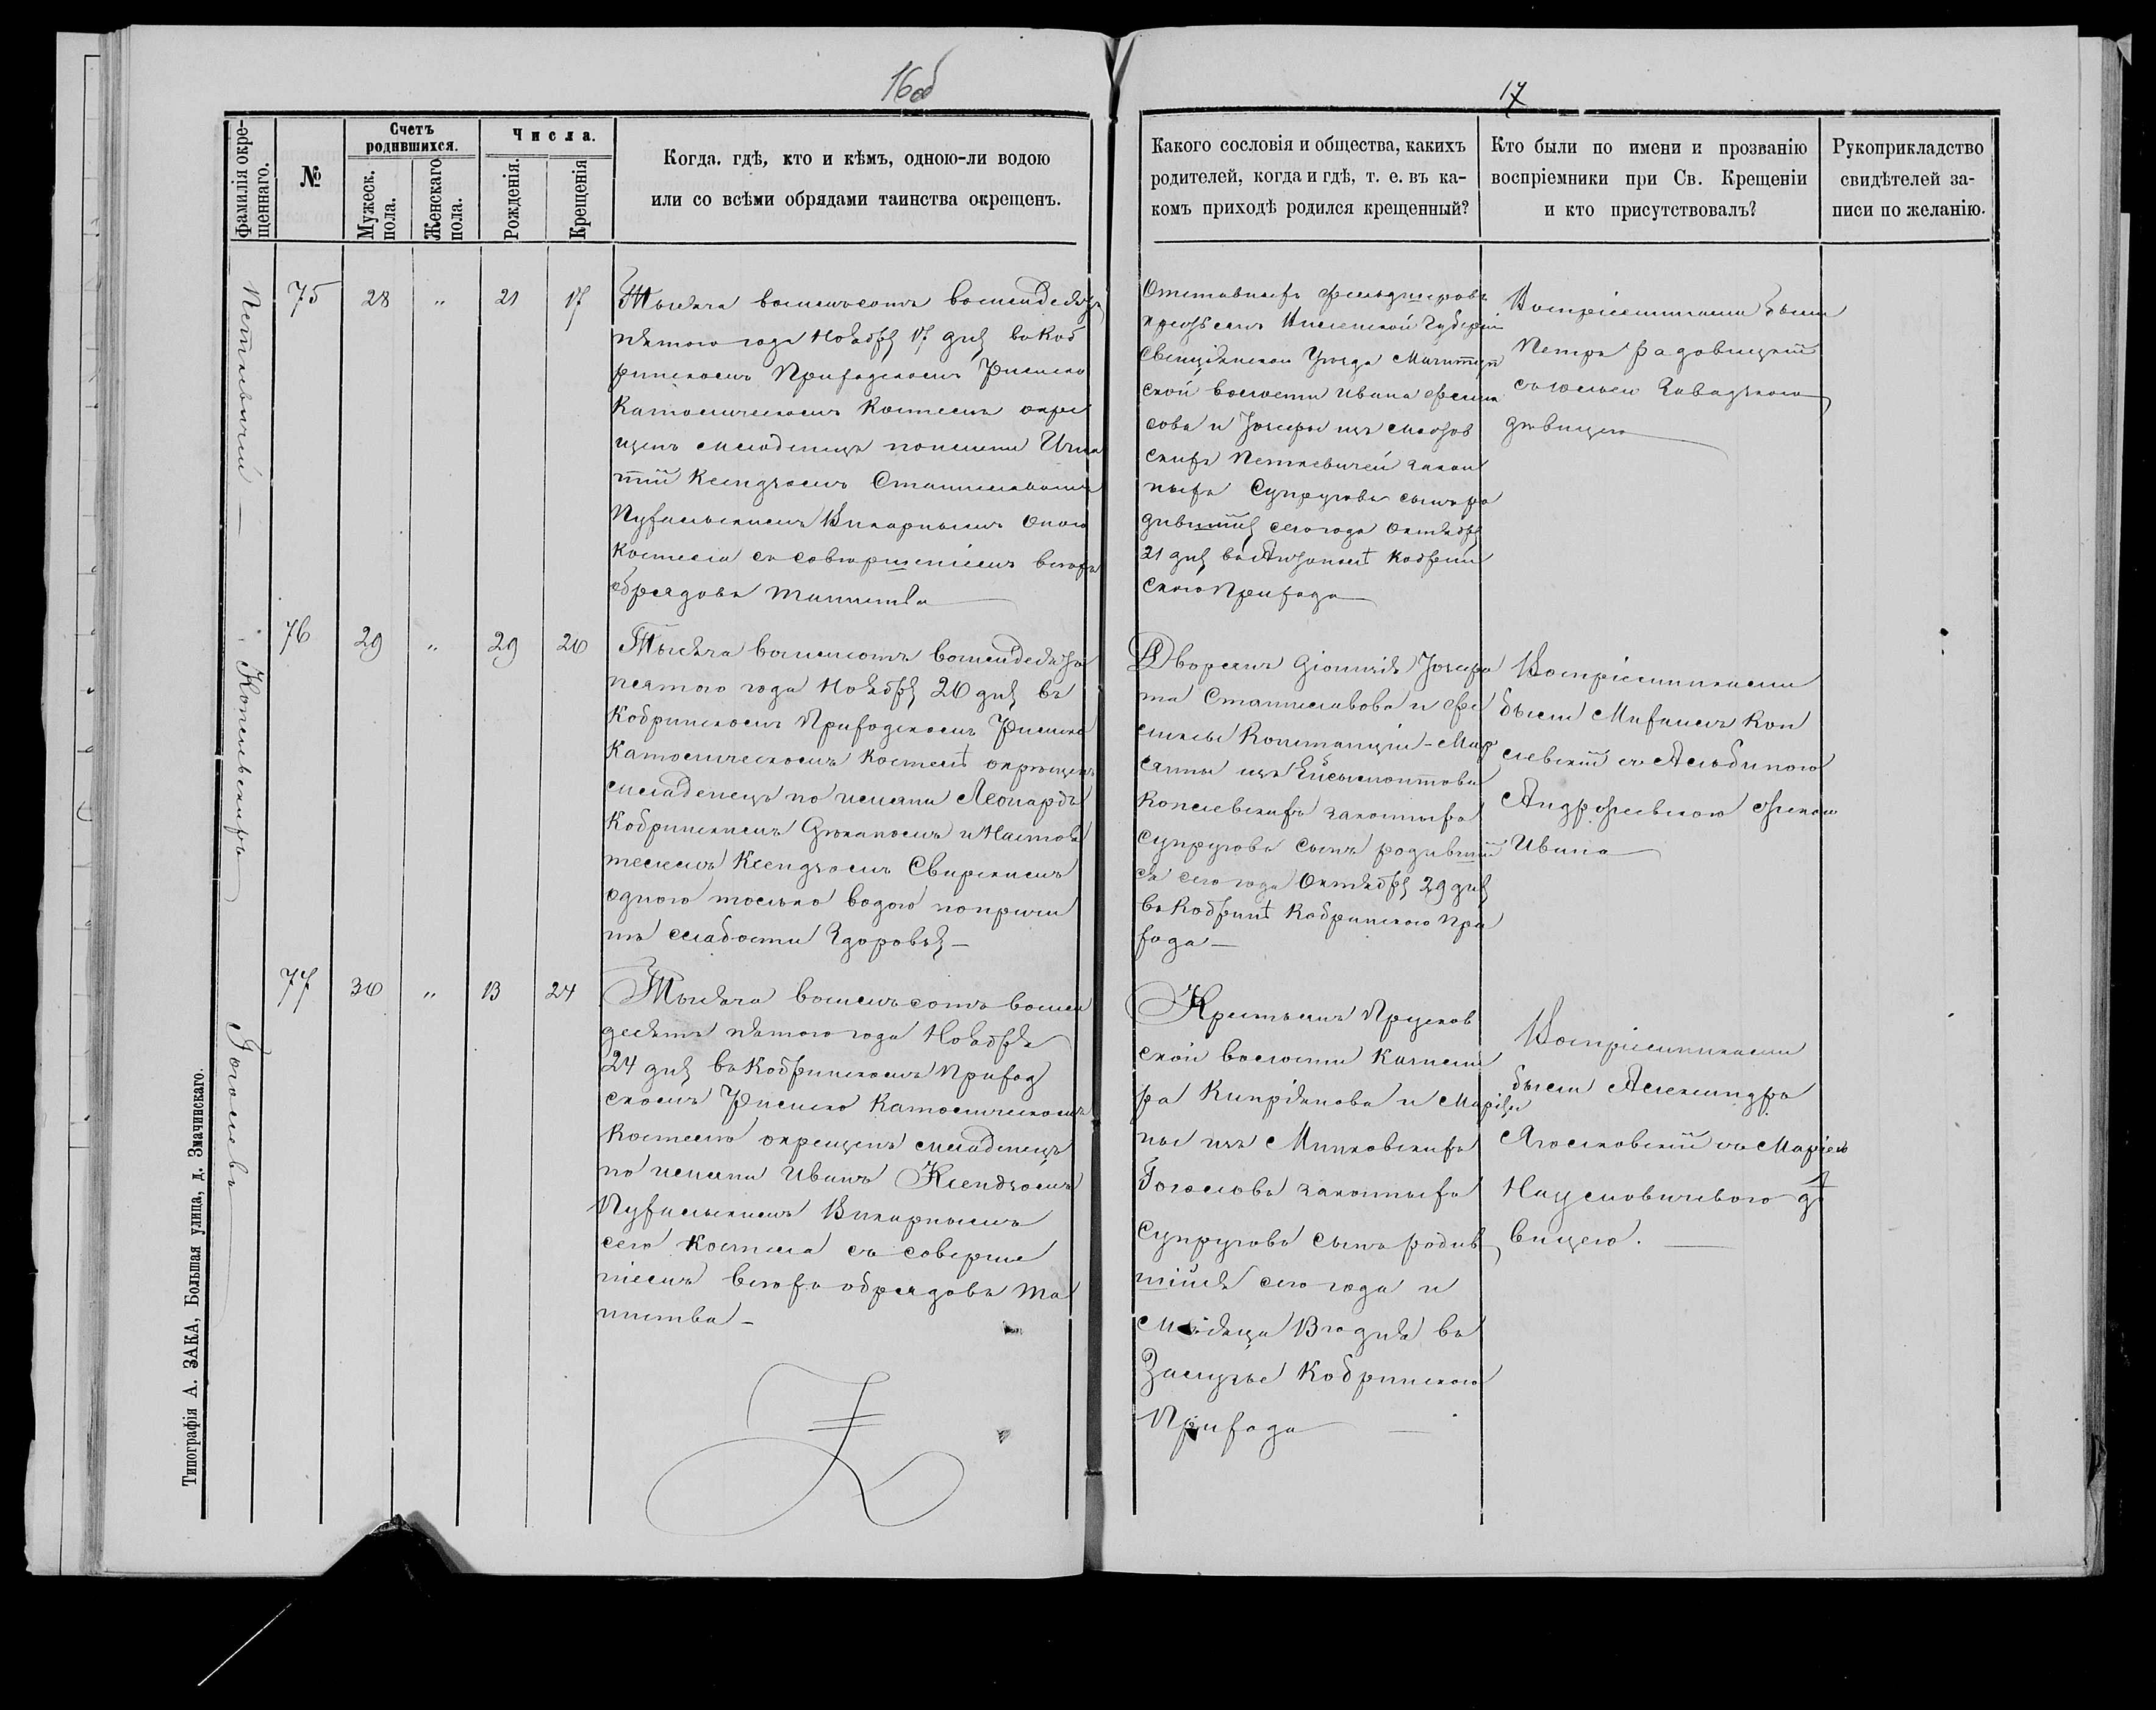 16об
17
Фамилія окре-
щеннаго.
№
Счетъ
родившихся.
Мужеск.
пола.
Женскаго
пола.
Числа.
Рожденія.
Крещенія
Когда. гдѣ, кто и кѣмъ, одною-ли водою
или со всѣми обрядами таинства окрещенъ.
Какого сословія и общества, какихъ
родителей, когда и гдѣ, т. е. въ ка-
комъ приходѣ родился крещенный?
Кто были по имени и прозванію
воспріемники при Св. Крещеніи
и кто присутствовалъ?
Рукоприкладство
свидѣтелей за-
писи по желанію.
Петкевичей
75 28 " 21 17
Тысяча восемьсотъ восемдесятъ
пятого года Ноября 17 дня въ Коб
ринскомъ Приходскомъ Римско
Католическомъ Костелѣ окре
щенъ младенецъ по имени Игна
тій Ксендзомъ Станиславомъ
Пухальскимъ Викарнымъ оного
Костела съ совершеніемъ всѣхъ
обрядовъ таинства
Отставныхъ фельдшеровъ
Виленской Губерніи
Свенцянскаго Уѣзда
ской волости Ивана
и Іозефы изъ
скихъ Петкевичей закон
ныхъ Супруговъ сынъ ро
дившійся сего года Октября
21 дня въ Кобрин
скаго Прихода
Воспріемниками были
Петръ Радовицкій
съ Завадскою
дѣвицею
Копельскихъ
76 29 " 29 20
Тысяча восемсотъ восемдесятъ
пятого года Ноября 20 дня въ
Кобринскомъ Приходскомъ Римско
Католическомъ Костелѣ окрещенъ
младенецъ по имени Леонардъ
Кобринскимъ Деканомъ и Настоя
телемъ Ксендзомъ Свирскимъ
одною только водою по причи
нѣ слабости Здоровья
Дворянъ Іосифа
та Станиславова и Фе
Констанціи-Мар
изъ
Копелевскихъ законныхъ
супруговъ Сынъ родившій
ся сего года Октября 29 дня
въ Кобринѣ Кобринского При
хода
Воспріемниками
были Михаилъ Коп
левскій съ Альбиною
Андржеевскою женою
Ивана
Гоголевъ
77 30 " 13 24
Тысяча восемьсотъ восем
десятъ пятого года Ноября
24 дня въ Кобринскомъ Приход
скомъ Римско Католическомъ
Костелѣ окрещенъ младенецъ
по имени Иванъ Ксендзомъ
Пухальскимъ Викарнымъ
сего Костела съ соверше
ніемъ всѣхъ обрядовъ та
инства
Крестьянъ Прусков
ской волости Казими
ра Кипріянова и Маріан
ны изъ Минковскихъ
Гоголевъ законныхъ
Супруговъ Сынъ родив
шійся сего года и
Мѣсяца 13го дня въ
Залузье Кобринского
Прихода
Воспріемниками
были Александръ
Ягелковскій съ Маріею
Наумовичевою дѣ
вицею.
Типографія А. ЗАКА, Большая улица, д. Змачинскаго.